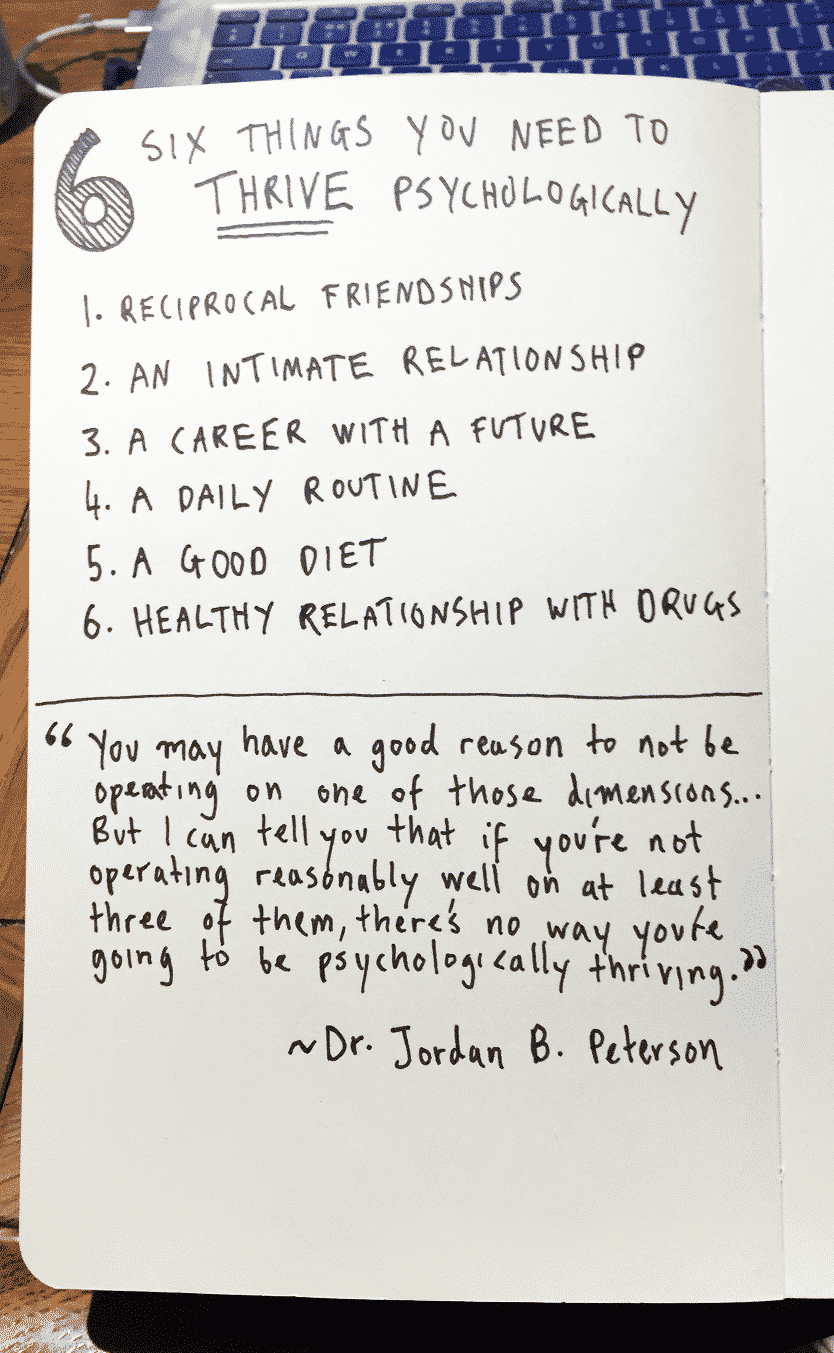 6 SIX THINGS YOU NEED TO
THRIVE PSYCHOLOGICALLY
1. RECIPROCAL FRIENDSHIPS
2. AN INTIMATE RELATIONSHIP
3. A CAREER WITH A FUTURE
4. A DAILY ROUTINE
5. A GOOD DIET
6. HEALTHY RELATIONSHIP WITH DRUGS
“You may have a good reason to not be
operating on one of those dimensions...
But I can tell you that if you're not
operating reasonably well on at least
three of them, there's no way you're
going to be psychologically thriving.”
~Dr. Jordan B. Peterson